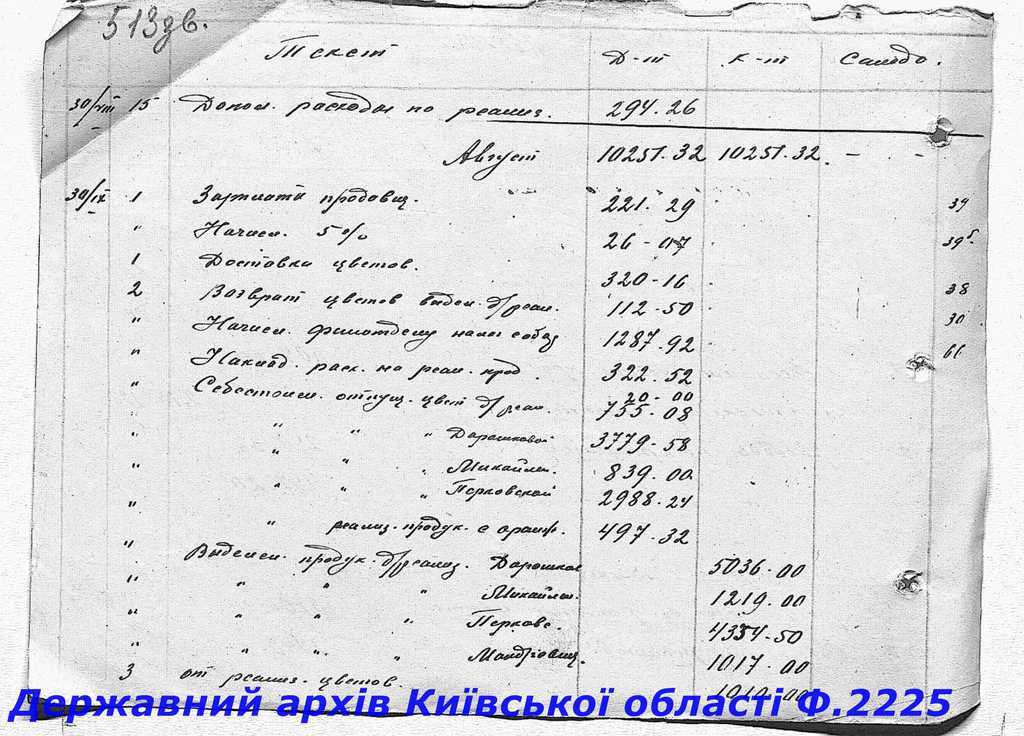 513зв.
Текст Д-т К-т Сальдо.
30/VIII 15 Допол. расходы по реализ. 294.26
Август 10251.32 10251.32 - -
30/IX 1 Зарплата продовщ. 221.29 39
" Начисл. 5% 26-07 39⁵.
1 Доставка цветов. 320-16 38
2 Возврат цветов выдел. д/реал. 112-50 30
" Начисл. 1287.92 66
" Наклад. расх. на реал. прод. 322.52
20-00
" Себестоим. отпущ. цвет д/реал. 755-08
" " " " Дорошковой 3779-58
" " " " Михайлов. 839.00
" " " " Перковской 2988.24
" " реализ. продук. с оранж. 497.32
" Выделен. продук. д/реализ. Дорошков 5036-00
" " " " Михайлов. 1219.00
" " " " Перковс. 4354-50
" " " " 1017.00
3 от реализ. цветов. 1019.00
Державний архів Київської області Ф.2225